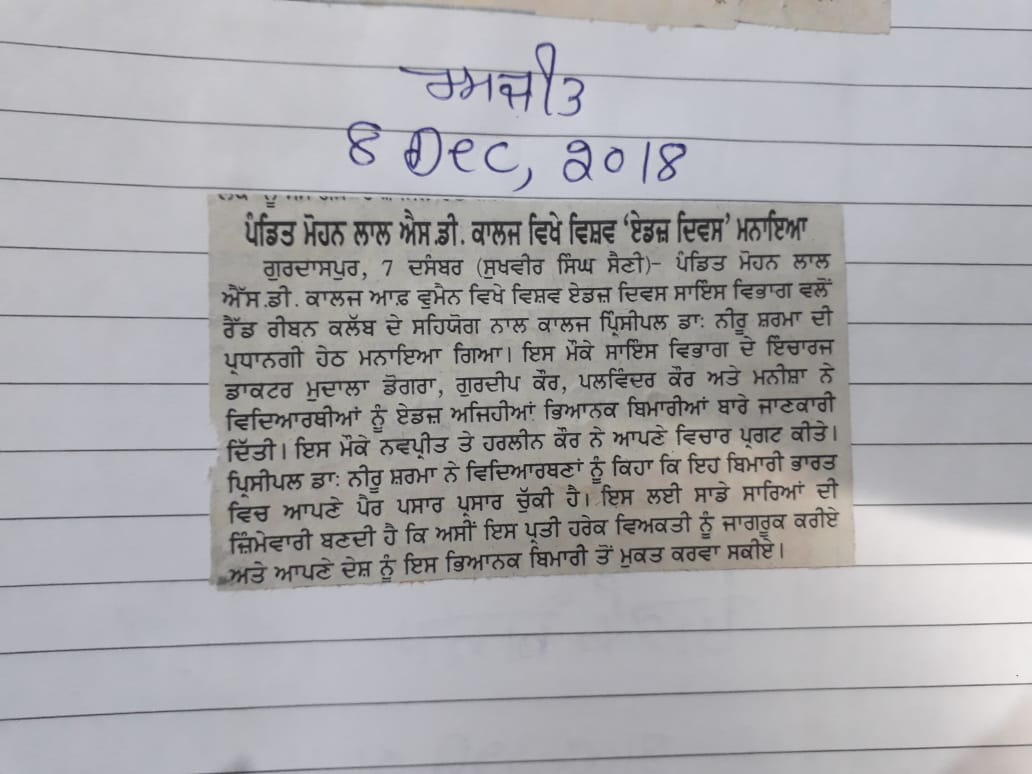 ਰਮਜੀਤ
8 Dec, 2018
ਪੰਡਿਤ ਮੋਹਨ ਲਾਲ ਐਸ.ਡੀ. ਕਾਲਜ ਵਿਖੇ ਵਿਸ਼ਵ ‘ਏਡਜ਼ ਦਿਵਸ’ ਮਨਾਇਆ
ਗੁਰਦਾਸਪੁਰ, 7 ਦਸੰਬਰ (ਸੁਖਵੀਰ ਸਿੰਘ ਸੈਣੀ)- ਪੰਡਿਤ ਮੋਹਨ ਲਾਲ
ਐੱਸ.ਡੀ. ਕਾਲਜ ਆਫ਼ ਵੁਮੈਨ ਵਿਖੇ ਵਿਸ਼ਵ ਏਡਜ਼ ਦਿਵਸ ਸਾਇੰਸ ਵਿਭਾਗ ਵਲੋਂ
ਰੈੱਡ ਰੀਬਨ ਕਲੱਬ ਦੇ ਸਹਿਯੋਗ ਨਾਲ ਕਾਲਜ ਪ੍ਰਿੰਸੀਪਲ ਡਾ: ਨੀਰੂ ਸ਼ਰਮਾ ਦੀ
ਪ੍ਰਧਾਨਗੀ ਹੇਠ ਮਨਾਇਆ ਗਿਆ। ਇਸ ਮੌਕੇ ਸਾਇੰਸ ਵਿਭਾਗ ਦੇ ਇੰਚਾਰਜ
ਡਾਕਟਰ ਮੁਦਾਲਾ ਡੋਗਰਾ, ਗੁਰਦੀਪ ਕੌਰ, ਪਲਵਿੰਦਰ ਕੌਰ ਅਤੇ ਮਨੀਸ਼ਾ ਨੇ
ਵਿਦਿਆਰਥੀਆਂ ਨੂੰ ਏਡਜ਼ ਅਜਿਹੀਆਂ ਭਿਆਨਕ ਬਿਮਾਰੀਆਂ ਬਾਰੇ ਜਾਣਕਾਰੀ
ਦਿੱਤੀ। ਇਸ ਮੌਕੇ ਨਵਪ੍ਰੀਤ ਤੇ ਹਰਲੀਨ ਕੌਰ ਨੇ ਆਪਣੇ ਵਿਚਾਰ ਪ੍ਰਗਟ ਕੀਤੇ।
ਪ੍ਰਿੰਸੀਪਲ ਡਾ: ਨੀਰੂ ਸ਼ਰਮਾ ਨੇ ਵਿਦਿਆਰਥਣਾਂ ਨੂੰ ਕਿਹਾ ਕਿ ਇਹ ਬਿਮਾਰੀ ਭਾਰਤ
ਵਿਚ ਆਪਣੇ ਪੈਰ ਪਸਾਰ ਪ੍ਰਸਾਰ ਚੁੱਕੀ ਹੈ। ਇਸ ਲਈ ਸਾਡੇ ਸਾਰਿਆਂ ਦੀ
ਜ਼ਿੰਮੇਵਾਰੀ ਬਣਦੀ ਹੈ ਕਿ ਅਸੀਂ ਇਸ ਪ੍ਰਤੀ ਹਰੇਕ ਵਿਅਕਤੀ ਨੂੰ ਜਾਗਰੂਕ ਕਰੀਏ
ਅਤੇ ਆਪਣੇ ਦੇਸ਼ ਨੂੰ ਇਸ ਭਿਆਨਕ ਬਿਮਾਰੀ ਤੋਂ ਮੁਕਤ ਕਰਵਾ ਸਕੀਏ।